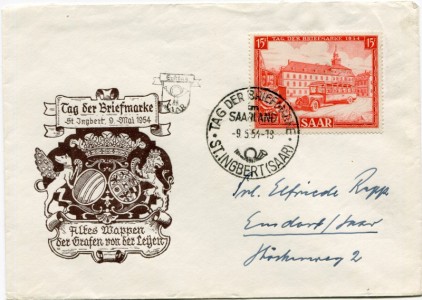 Tag der Briefmarke
St. Ingbert, 9. Mai 1954
Altes Wappen
der Grafen von der Leyen
SAAR
15F TAG DER BRIEFMARKE 1954 15F
SAAR
TAG DER BRIEFMARKE
im
SAARLAND
-9.5.54-18
ST. INGBERT (SAAR)
Elfriede Rapp
Ensdorf/Saar
2